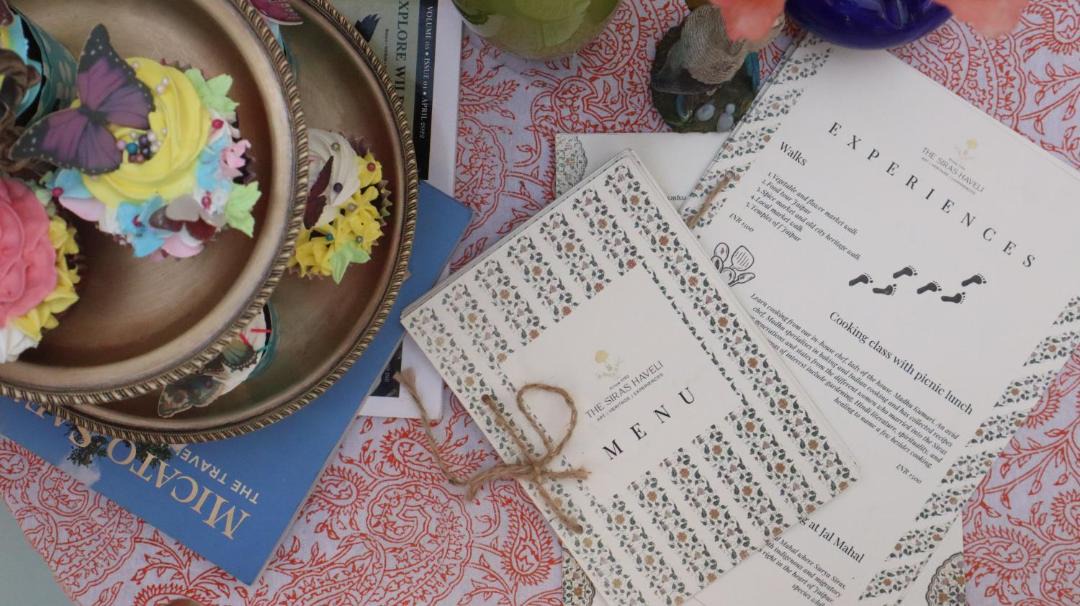 VOLUME 05 • ISSUE 01 • APRIL 2022
EXPLORE WIL
MICATO SA
THE TRAVEL
THE SIRAS HAVELI
ART | HERITAGE | EXPERIENCES
MENU
THE SIRAS HAVELI
ART | HERITAGE | EXPERIENCES
EXPERIENCES
Walks
1. Vegetable and flower market walk
2. Food tour Jaipur
3. Spice market and old city heritage walk
4. Local market walk
5. Temples of Jaipur
INR 1500
Cooking class with picnic lunch
Learn cooking from our in-house chef, lady of the house, Madhu Kumari. An avid
chef, Madhu specializes in baking and Indian cooking and has collected recipes
generations and states from the different women who married into the Siras
ngs of interest include gardening, Hindi literature, spirituality, and
healing to name a few, besides cooking.
INR 1500
g at Jal Mahal
Mahal where Surya Siras,
with indigenous and migratory
s right in the heart of Jaipur
species while